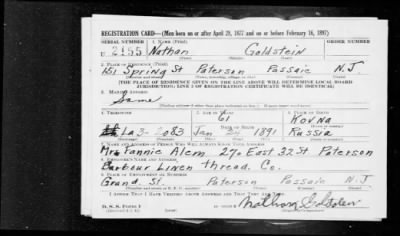 REGISTRATION CARD—(Men born on or after April 28, 1877 and on or before February 16, 1897)
SERIAL NUMBER 1. NAME (Print) ORDER NUMBER
U 2155 Nathan Goldstein
2. PLACE OF RESIDENCE (Print)
151 Spring St Paterson Passaic N.J.
(THE PLACE OF RESIDENCE GIVEN ON THE LINE ABOVE WILL DETERMINE LOCAL BOARD
JURISDICTION; LINE 2 OF REGISTRATION CERTIFICATE WILL BE IDENTICAL)
3. MAILING ADDRESS
Same
4. TELEPHONE
Kovna
La 3-2083 Jan 1891 Russia
7. NAME AND ADDRESS OF PERSON WHO WILL ALWAYS KNOW YOUR ADDRESS
Mrs Fannie 270 East 32 St Paterson
8. EMPLOYER'S NAME AND ADDRESS
Barbour Linen thread. Co.
9. PLACE OF EMPLOYMENT OR BUSINESS
Grand. St. Paterson Passaic N.J.
I AFFIRM THAT I HAVE VERIFIED ABOVE ANSWERS AND THAT THEY ARE TRUE.
D. S. S. Form 1
Nathan Goldstein